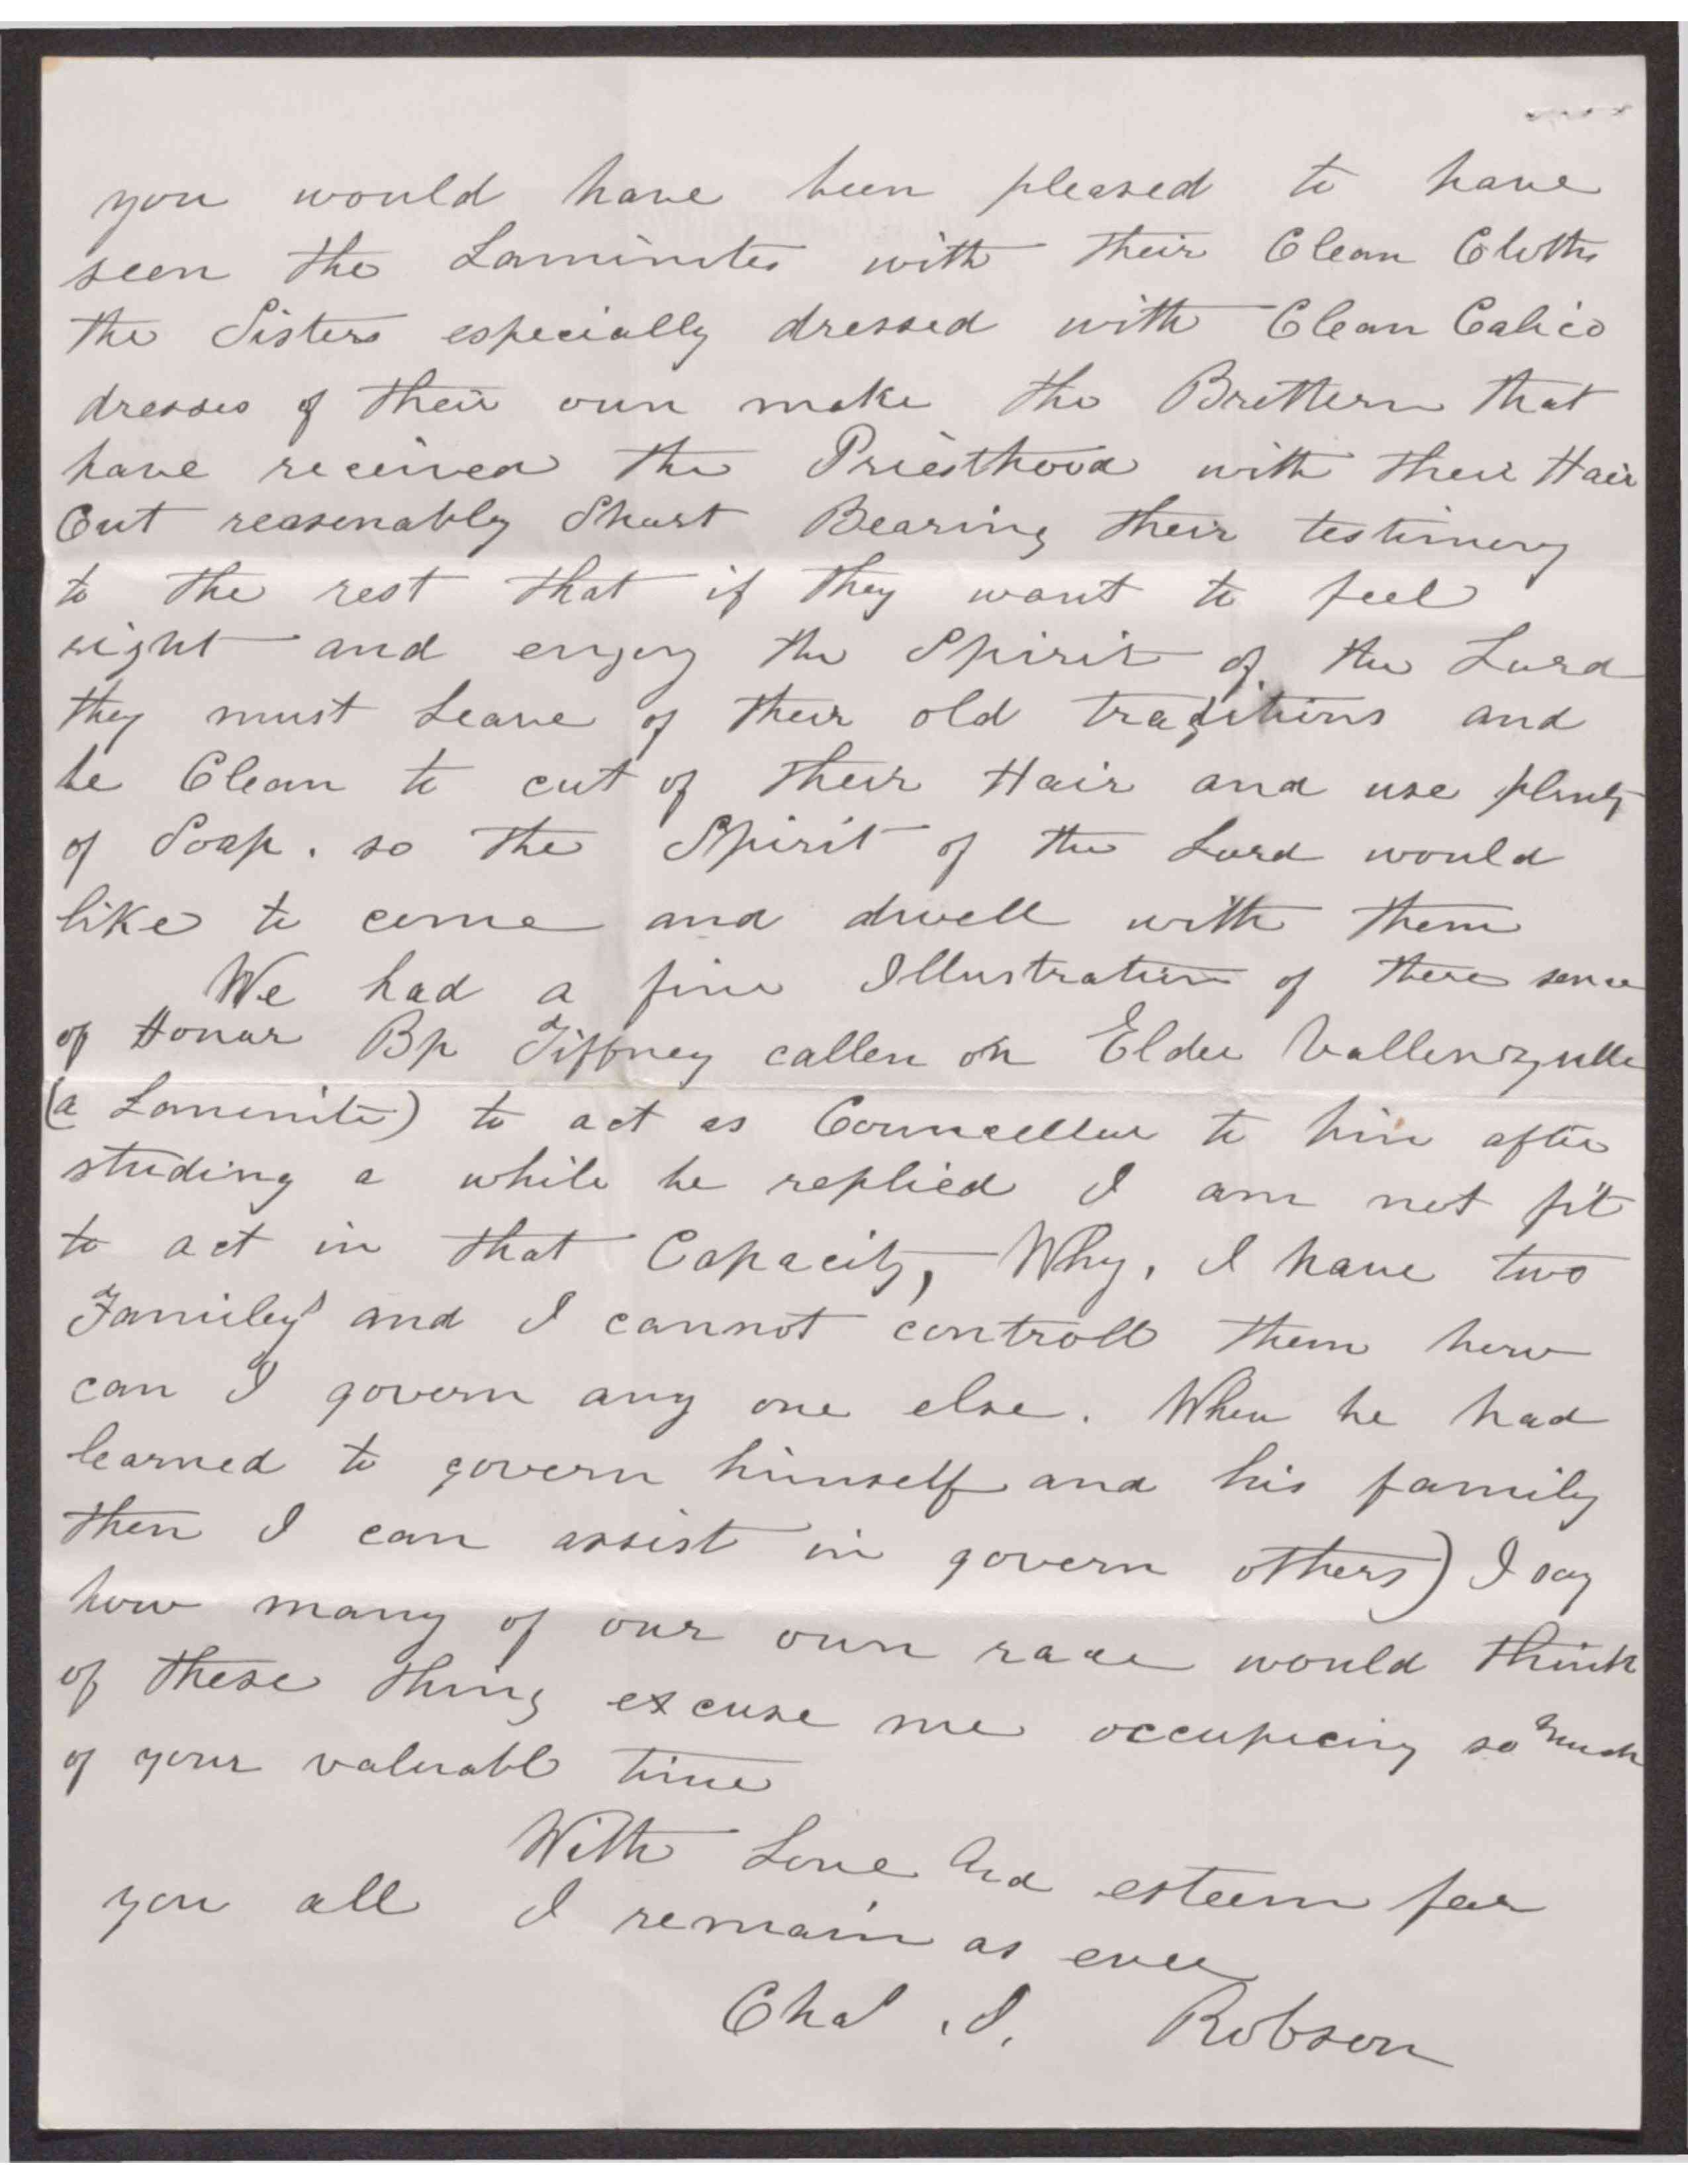 you would have been pleased to have
seen the Laminites with their Clean Cloths
the Sisters especially dressed with Clean Calico
dresses of their own make the Brethern that
have received the Priesthood with their Hair
Cut reasenably Short Bearing their testimony
to the rest that if they want to feel
right and enjoy the Spirit of the Lord
they must Leave of their old traditions and
be Clean to cut of their Hair and use plenty
of Soap. so the Spirit of the Lord would
like to come and dwell with them
We had a fine Illustration of there sence
of Honar Bp Tiffney callen on Elder
(a Laminite) to act as Councellor to him after
studing a while he replied I am not fit
to act in that Capacity, Why, I have two
Familey's and I cannot controll them how
can I govern any one else. When he had
learned to govern himself and his family
then I can assist in govern others) I say
how many of our own race would think
of these thing excuse me occupieing so much
of your valuabl time
With Love And esteem for
you all I remain as ever
Chas. I. Robson